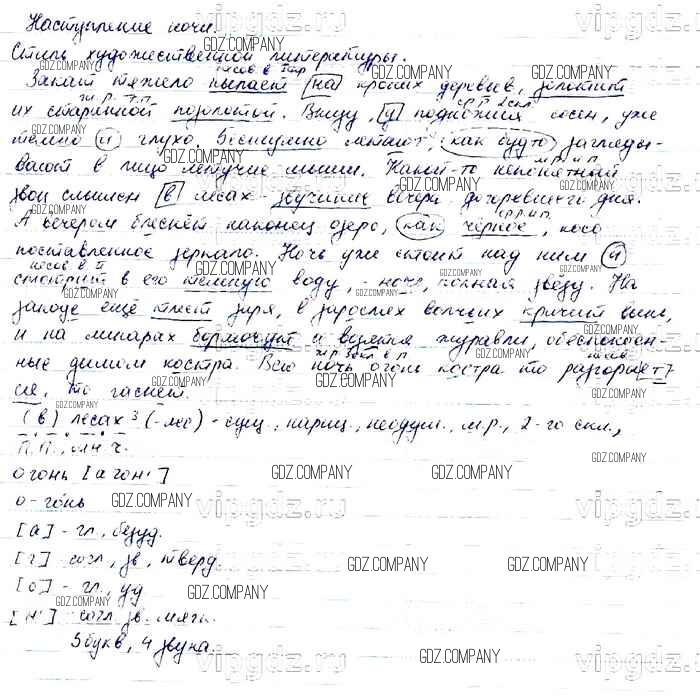 Наступление ночи.
Стиль художественной литературы.
Закат тяжело пылает на кронах деревьев, золотит
их старинной позолотой. Внизу, у подножия сосен, уже
темно и глухо. Бесшумно летают, как будто загляды-
вают в лицо летучие мыши. Какой-то непонятный
звон слышен в лесах - звучание вечера, догоревшего дня.
А вечером блеснёт наконец озеро, как чёрное, косо
поставленное зеркало. Ночь уже стоит над ним и
смотрит в его темную воду, - ночь, полная звёзд. На
западе ещё тлеет заря, в зарослях волчьих кричит выпь,
и на мшарах бормочут и возятся журавли, обеспокоен-
ные дымом костра. Всю ночь огонь костра то разгорает-
ся, то гаснет.
(В) лесах³ (-лес) - сущ., нариц., неодуш., м.р., 2-го скл.,
П.п., мн.ч.
огонь [агон']
о-гонь
[а] - гл., безуд.
[г] - согл., зв., тверд.
[о] - гл., уд
[н'] - согл. зв. мягк.
5 букв, 4 звука.
GDZ.COMPANY
vipgdz.ru